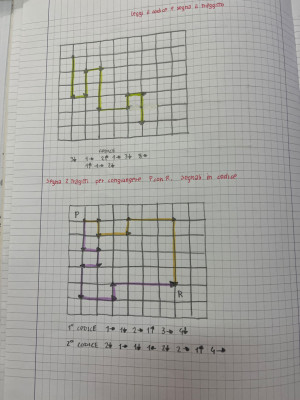 Leggi il codice e segna il tragitto
CODICE
3↓ 1→ 2↑ 1→ 3↓ 2→
1↑ 1→ 2↓
Segna 2 tragitti per congiungere P con R. Segnali in codice
P
R
1° CODICE 1→ 1↓ 2→ 1↑ 3→ 4↓
2° CODICE 2↓ 1→ 1↓ 1→ 2↓ 2→ 1↑ 4→